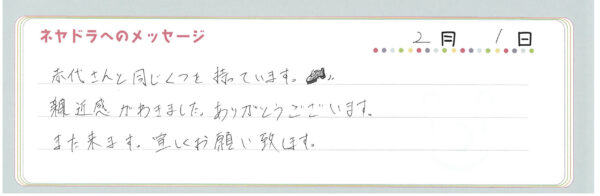 ネヤドラへのメッセージ 2月 1日
赤代さんと同じくつを持っています。
親近感がわきました。ありがとうございます。
また来ます。宜しくお願い致します。